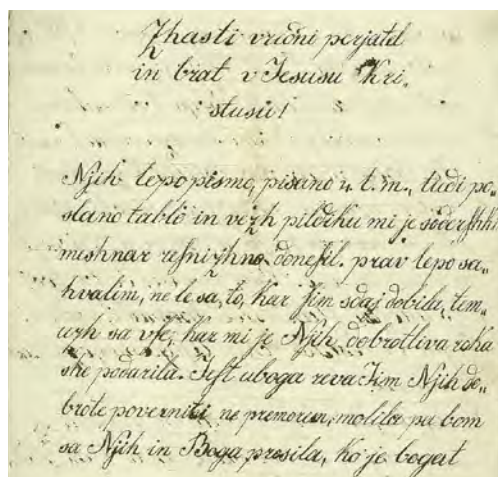 Zhasti vredni perjatel
in brat v Jesusu Kri,
stusu!
Njih lepo pismo, pisano 4. t. m., tudi po„
slano tablo in vezh pildzhku mi je
meshnar resnizhno donesil. prav lepo sa„
hvalim, ne le sa to, kar sim sdaj dobila, tem„
uzh sa vse, kar mi je Njih dobrotliva roka
she podarila. Jest uboga reva Jim Njih do„
brote poverniti ne premorem, molila pa bom
sa Njih in Boga prosila, ko je bogat